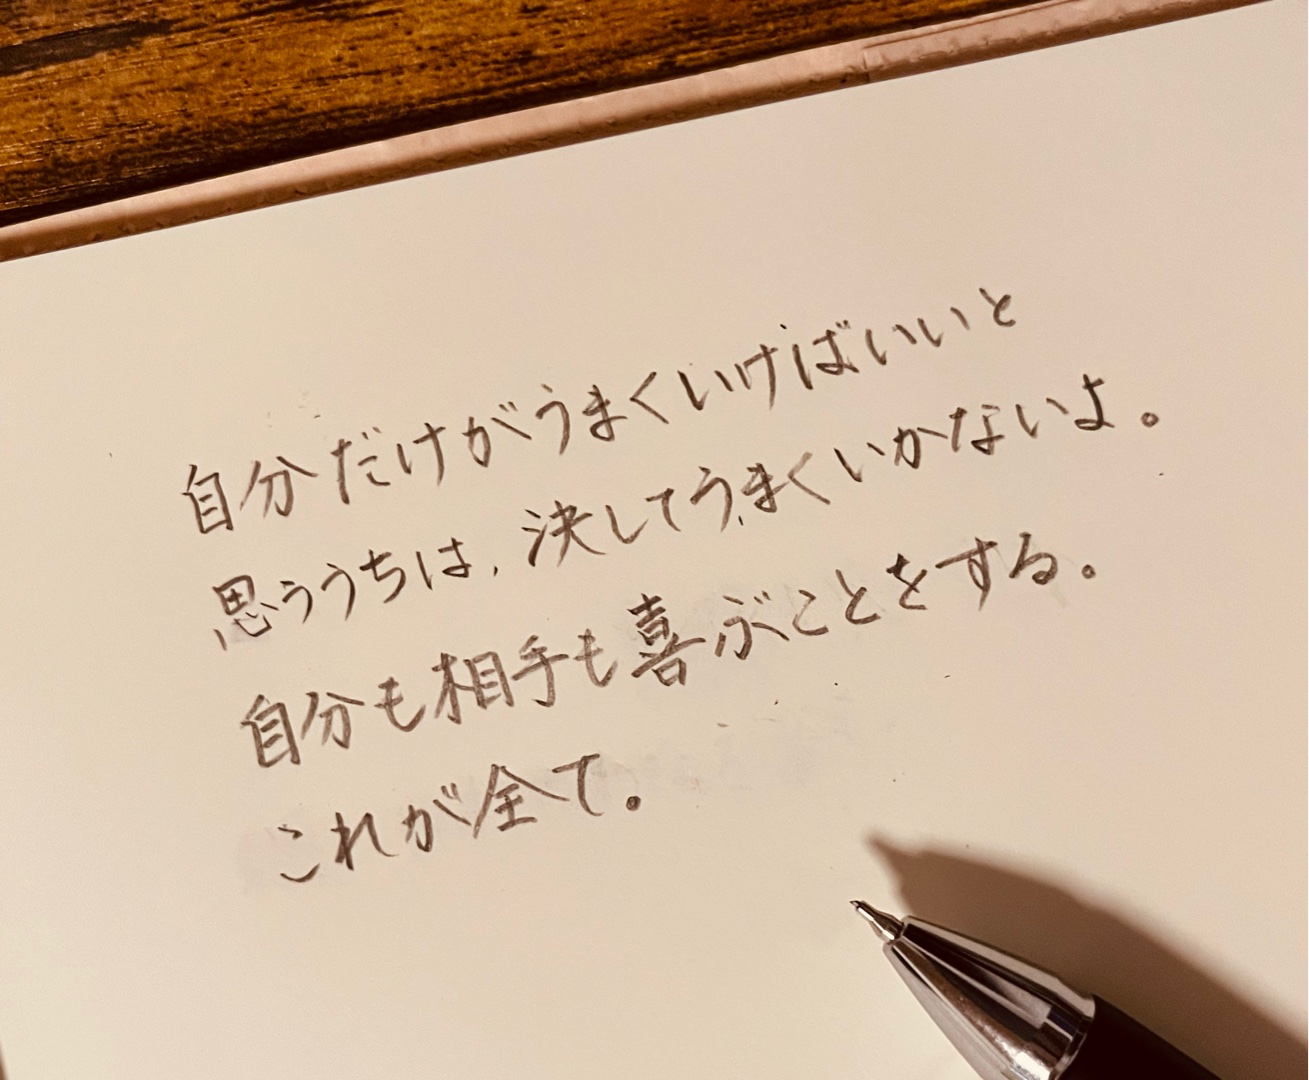 自分だけがうまくいけばいいと
思ううちは、決してうまくいかないよ。
自分も相手も喜ぶことをする。
これが全て。